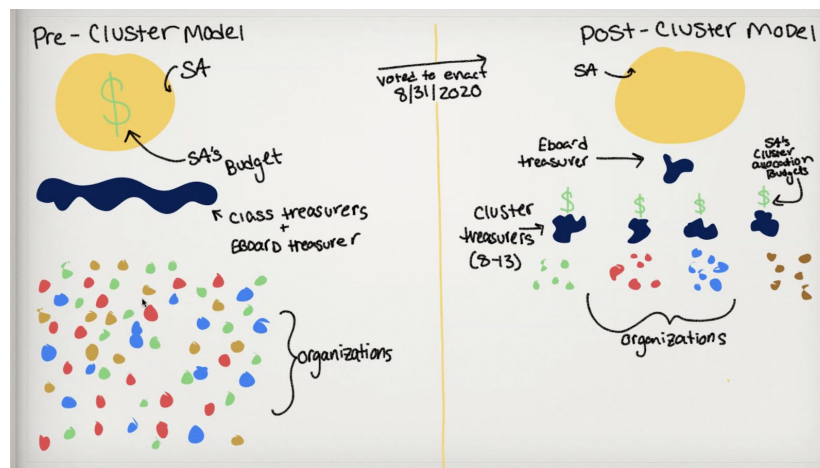 Pre-Cluster Model
SA
$
SA's Budget
Class treasurers
+
Eboard treasurer
organizations
voted to enact
8/31/2020
Post-Cluster Model
SA
Eboard
treasurer
SA's
Cluster
allocation
Budgets
$ $ $ $
Cluster
treasurers
(8-13)
organizations